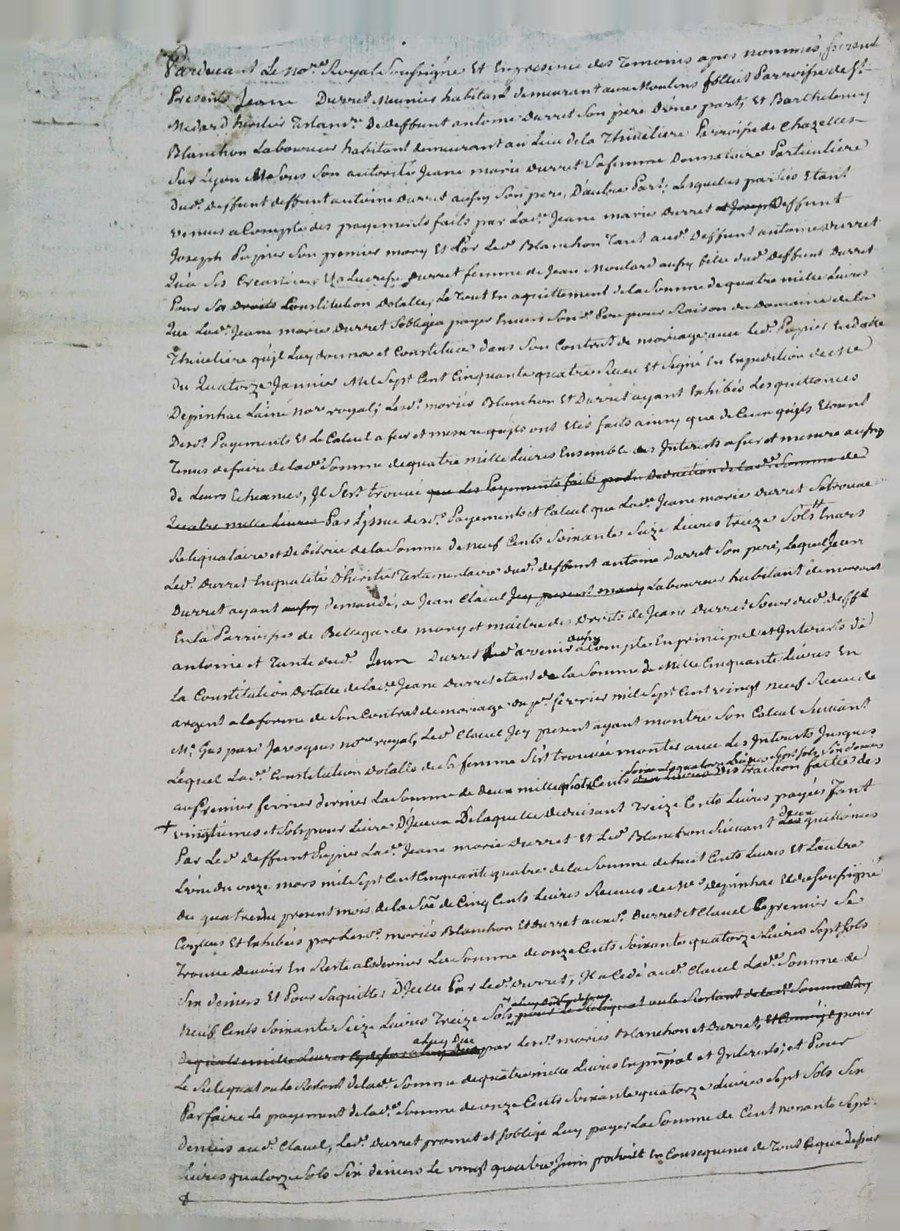 Pardevant Le nore. Royal Soussigné Et En presence des Temoins apres nommés, furent
Presents Jean Durret Meunier habitant demeurant aux Moulins Parroisse de St.
Medard heritier Testamre. De deffunt antoine durret Son pere D'une part; Et Barthelemy
Blanchon Laboureur habitant demeurant au Lieu de la Thiveliere Parroisse de Chazelles
Sur Lyon Et Sous Son autorité Jeanne marie durret Sa femme Donnataire Particuliere
dud. deffunt antoine durret aussy Son pere, D'autre Part; Lesquelles parties Etant
venues a Compte des payements faits par Lad. Jeanne marie durret deffunt
Joseph Pupier Son premier mary Et Par Led. Blanchon Tant aud. Deffunt antoine durret
Qu'a Ses Creanciers durret femme de Jean Moulard aussy fille dud. deffunt durret
Pour Sa Constitution Dotalle, Le Tout En aquittement de la Somme de quatre mille Livres
Que Lad. Jeanne marie durret S'obligea payer Envers Sond. Pere pour Raison du Domaine de la
Thiveliere qu'il Luy donna et Constitua dans Son Contrat de mariage avec Led. Pupier En datte
du Quatorze Janvier Mil Sept Cent Cinquante quatre Receu Et Signé En Expedition de Me
Depinhac L'ainé nore. royal; Lesd. mariés Blanchon Et Durret ayant Exhibés Les quittances
Desd. Payements Et Le Calcul a fur et mesure qu'ils ont Etés faits ainsy que de Ceux qu'ils Etoient
Tenus de faire de lad. Somme de quatre mille Livres Ensemble des Interets a fur et mesure aussy
de Leurs Echeances, Il S'est trouvé que des Payements faits Deduction de Lad. Somme de
Quatre mille Livres Par L'yssue desd. Payements et Calcul que Lad. Jeanne marie durret Se trouve
Reliquataire et Debitrice de la Somme de Neuf Cents Soixante Seize Livres Treize Sols Envers
Led. Durret En qualité D'heritier Testamentaire dud. deffunt antoine durret Son pere, Lequel Jean
Durret ayant aussy demandé, a Jean Clavel Icy present mary Laboureur habitant demeurant
En la Parroisse de Bellegarde mary et maitre des Droits de Jeanne durret Soeur dud. deffunt
antoine et Tante dud. Jean Durret a venir aussy a Compte En principal et Interets de
La Constitution Dotalle de lad. Jeanne durret Etant de la Somme de Mille Cinquante Livres En
argent a la forme de Son Contrat de mariage du pr. fevrier mil Sept Cent vingt neuf Receu de
Me. Gaspard nore royal, Led. Clavel Icy present ayant montré Son Calcul Suivant
Lequel Lad. Constitution Dotalle de Sa femme S'est trouvée monter avec Les Interets Jusques
au Premier fevrier dernier La Somme de deux mille quatre Cents Soixante quatorze Livres Sept Sols Six deniers Distraction faitte des
+ vingtiemes et Sols pour Livre D'Iceux De laquelle deduisant Treize Cents Livres payées Tant
Par Led. deffunt Pupier Lad. Jeanne marie durret Et Led. Blanchon Suivant deux quittances
L'une du onze mars mil Sept Cent Cinquante quatre de la Somme de huit Cents Livres Et L'autre
du quatre du present mois de la Soe. de Cinq Cents Livres Receues de Me. depinhac Et du Soussigné
Conçues Et Exhibées par Lesd. mariés Blanchon Et durret auxd. durret et Clavel Le premier Se
Trouve Devoir En Reste a Ce dernier La Somme de onze Cents Soixante quatorze Livres Sept Sols
Six deniers Et Pour S'aquitter D'Icelle Par Led. durret, Il a Cedé aud. Clavel Lad. Somme de
Neuf Cents Soixante Seize Livres Treize Sols pour Le Reliquat ou Le Restant de lad. Somme
de quatre mille Livres a luy Due par Lesd. mariés Blanchon et Durret, pour
Le Reliquat ou Le Restant de lad. Somme de quatre mille Livres En prinpal et Interets; et Pour
Parfaire Le payement de lad. Somme de onze Cents Soixante quatorze Livres Sept Sols Six
deniers aud. Clavel, Led. durret promet et S'oblige Luy payer La Somme de Cent nonante Sept
Livres quatorze Sols Six deniers Le vingt quatre Juin prochain En Consequence de Tout Ce que dessus